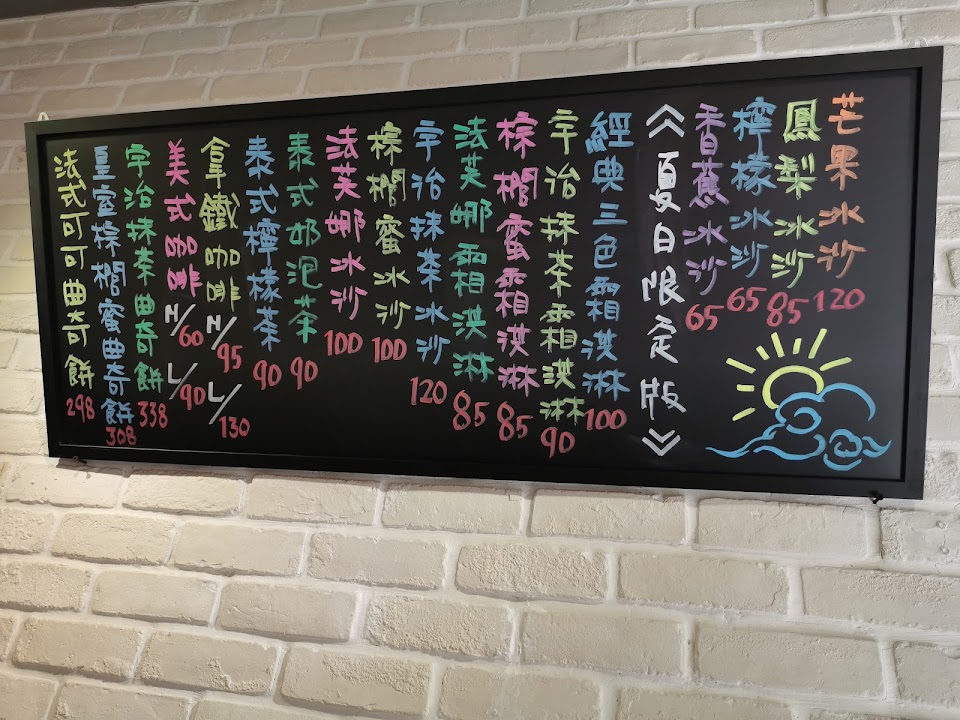 芒果冰沙 120
鳳梨冰沙 85
檸檬冰沙 65
香蕉冰沙 65
《夏日限定版》
經典三色霜淇淋 100
宇治抹茶霜淇淋 90
棕櫚蜜霜淇淋 85
法芙娜霜淇淋 85
宇治抹茶冰沙 120
棕櫚蜜冰沙 100
法芙娜冰沙 100
泰式奶泡茶 90
泰式檸檬茶 90
拿鐵咖啡 H/95 L/130
美式咖啡 H/60 L/90
宇治抹茶曲奇餅 338
皇室棕櫚蜜曲奇餅 308
法式可可曲奇餅 298